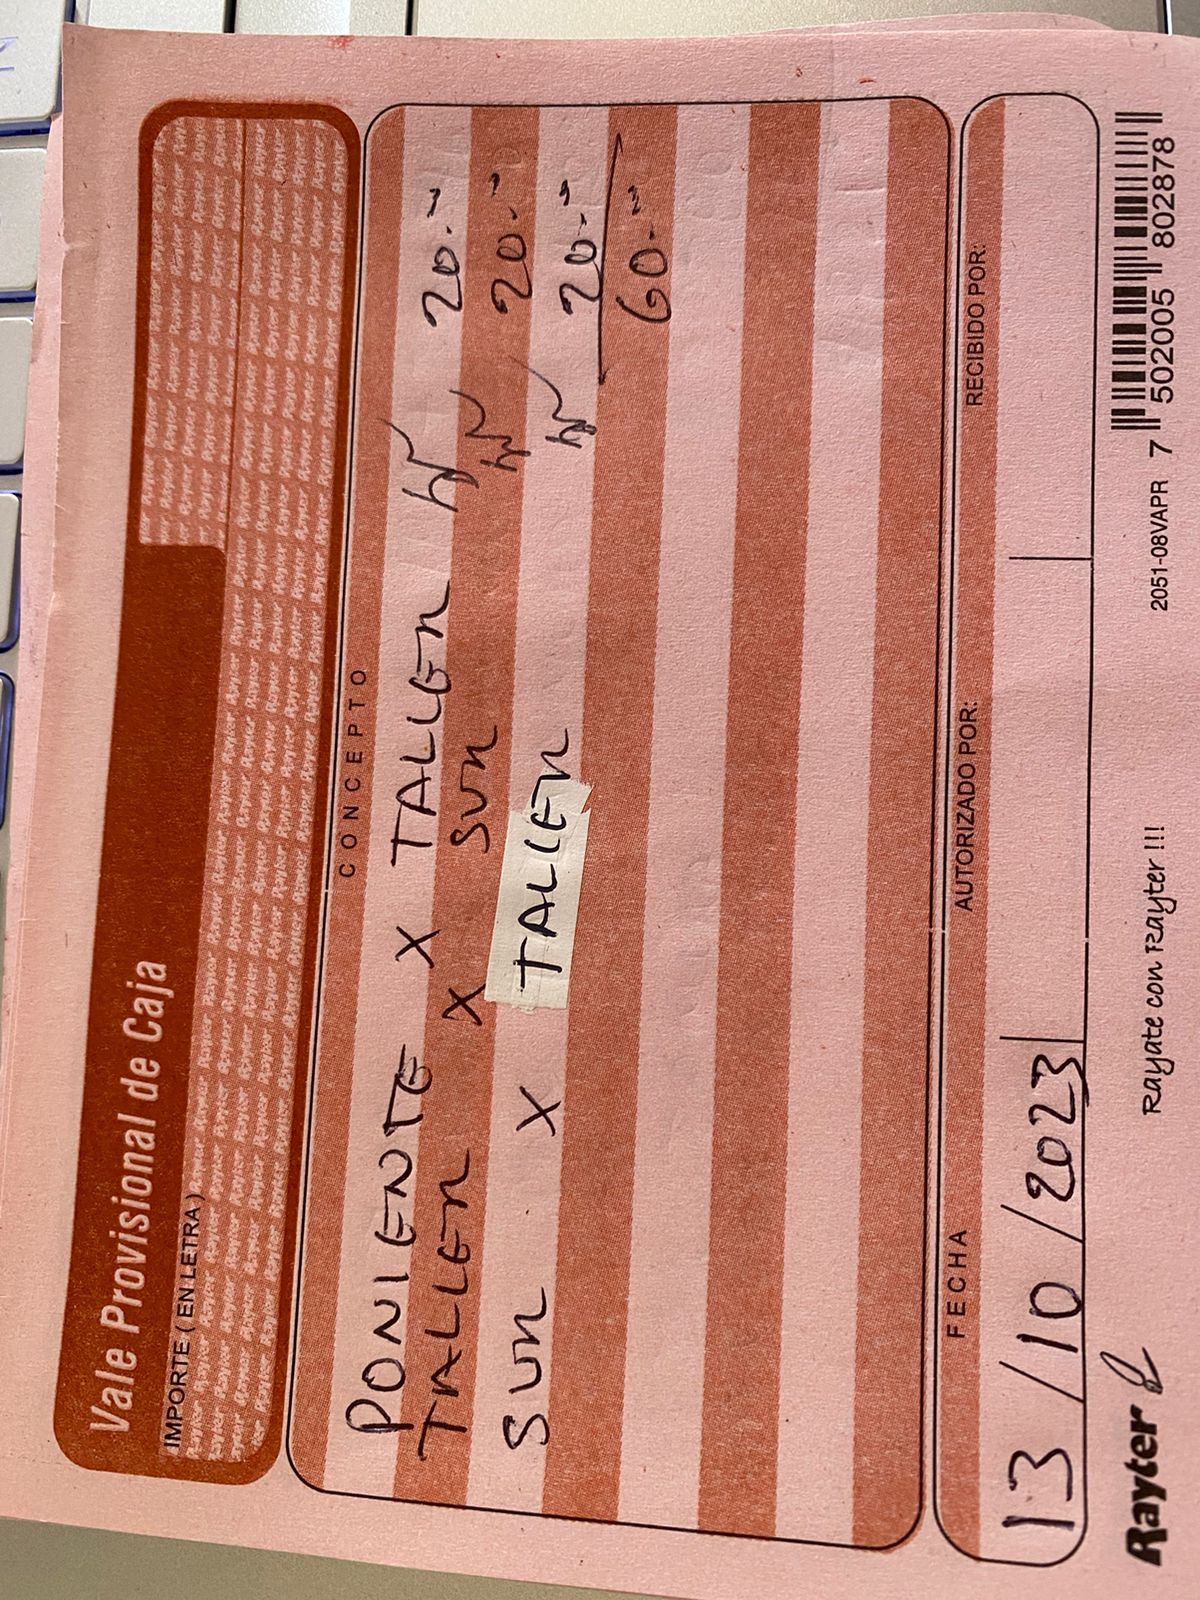 Vale Provisional de Caja
IMPORTE ( EN LETRA )
CONCEPTO
PONIENTE X TALLER 20.-
TALLER X SUR 20.-
SUR X TALLER 20.-
60.-
FECHA
AUTORIZADO POR:
RECIBIDO POR:
13/10/2023
Rayter
Rayate con Rayter !!!
2051-08VAPR
7 502005 802878